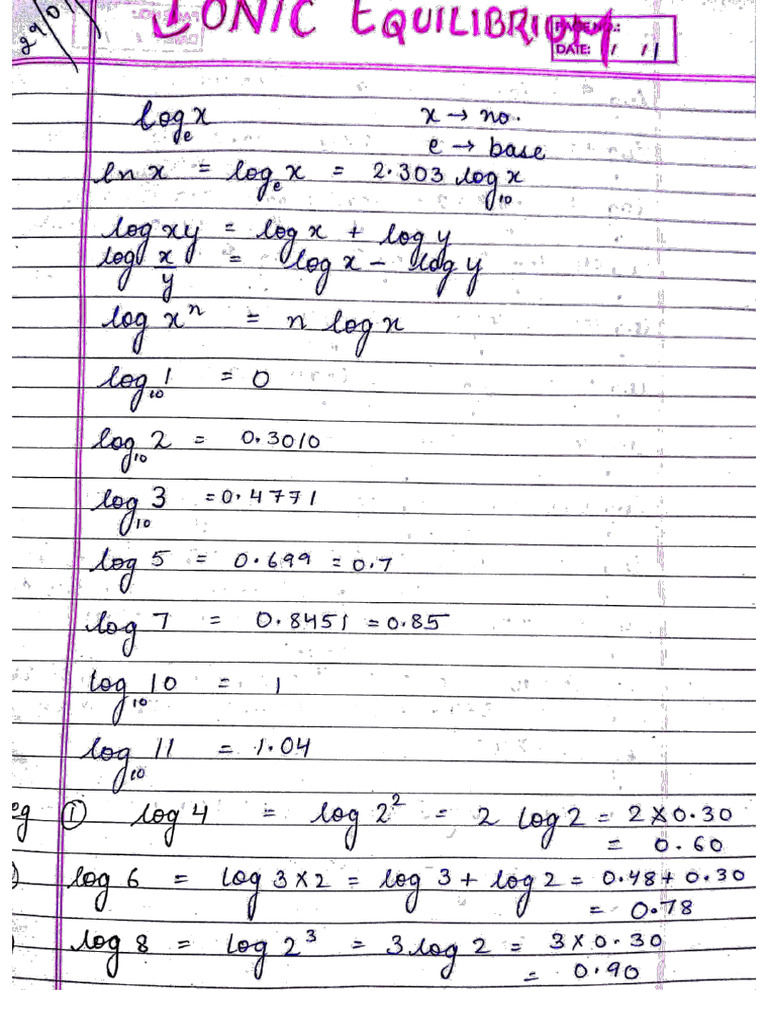 IONIC EQUILIBRIUM
PAGE NO.:
DATE: / /
29/01
logₑx x → no.
e → base
ln x = logₑ x = 2.303 log₁₀ x
log xy = log x + log y
log x/y = log x - log y
log xⁿ = n log x
log₁₀ 1 = 0
log₁₀ 2 = 0.3010
log₁₀ 3 = 0.4771
log 5 = 0.699 = 0.7
log 7 = 0.8451 = 0.85
log₁₀ 10 = 1
log₁₀ 11 = 1.04
eg ① log 4 = log 2² = 2 log 2 = 2 × 0.30
= 0.60
log 6 = log 3×2 = log 3 + log 2 = 0.48 + 0.30
= 0.78
log 8 = log 2³ = 3 log 2 = 3 × 0.30
= 0.90